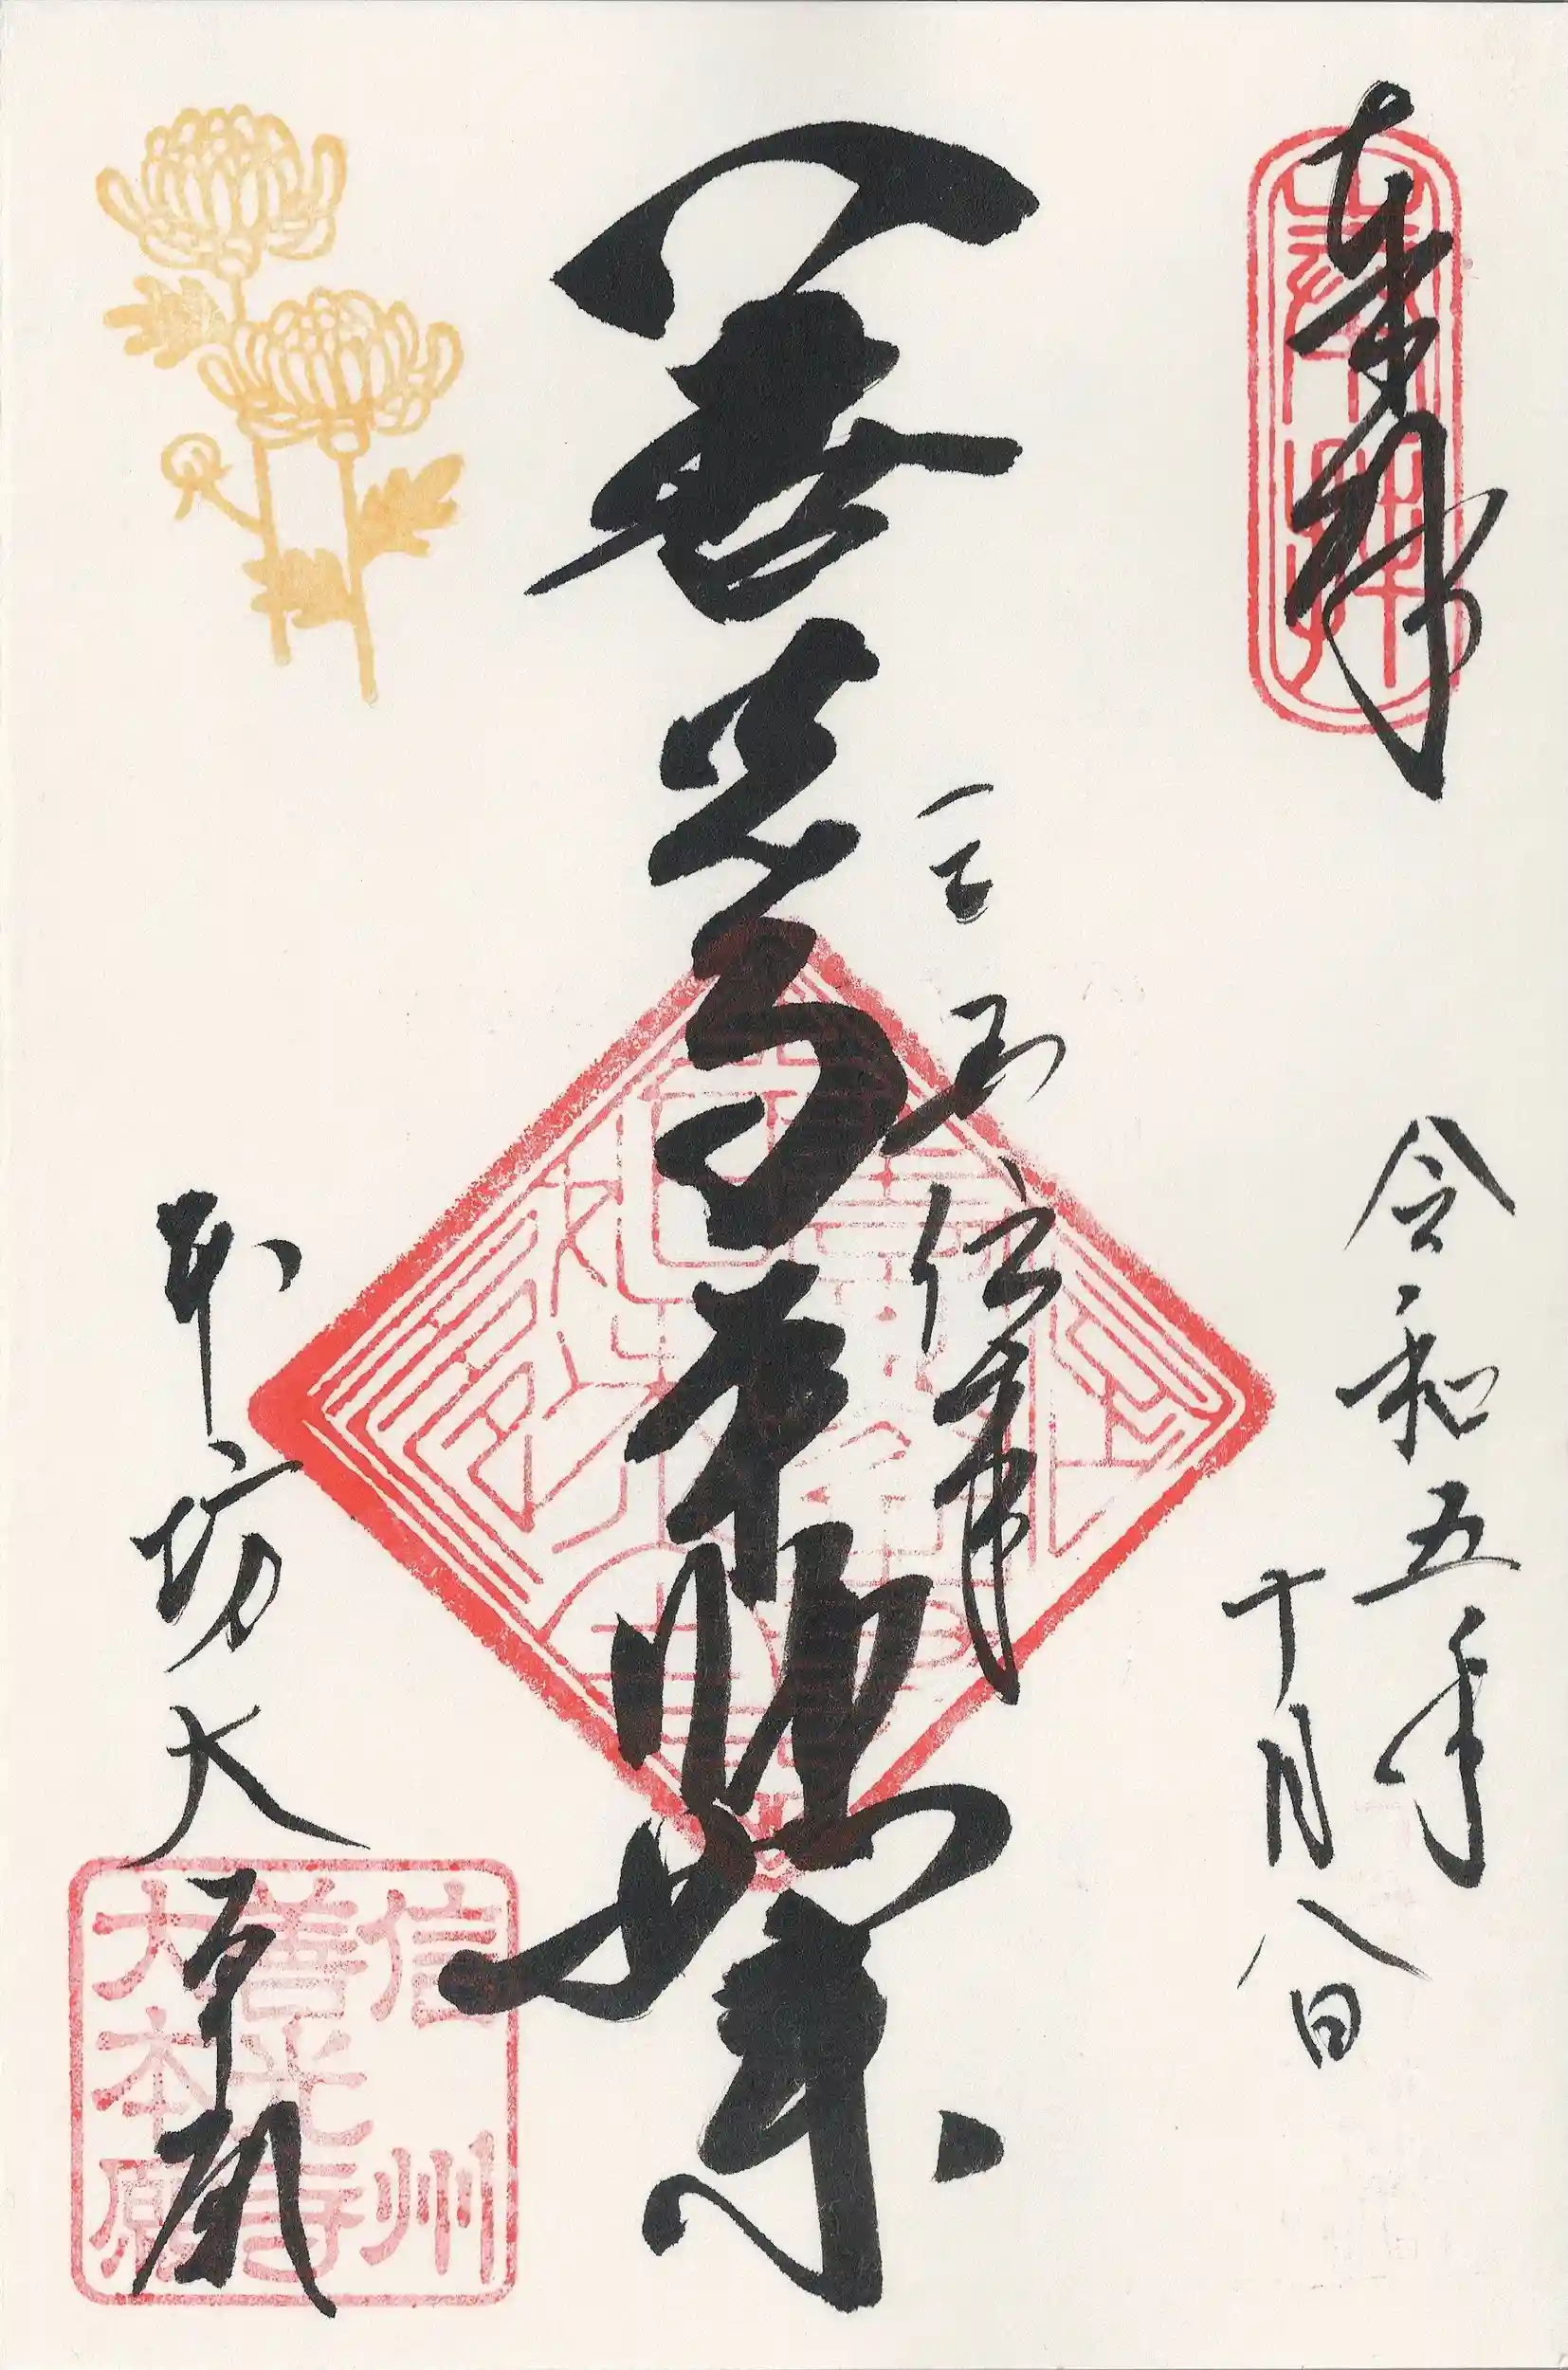 奉拝
奉拝
令和五年
十月八日
三国伝来
善光寺如来
本坊大本願
信州
善光寺
大本願